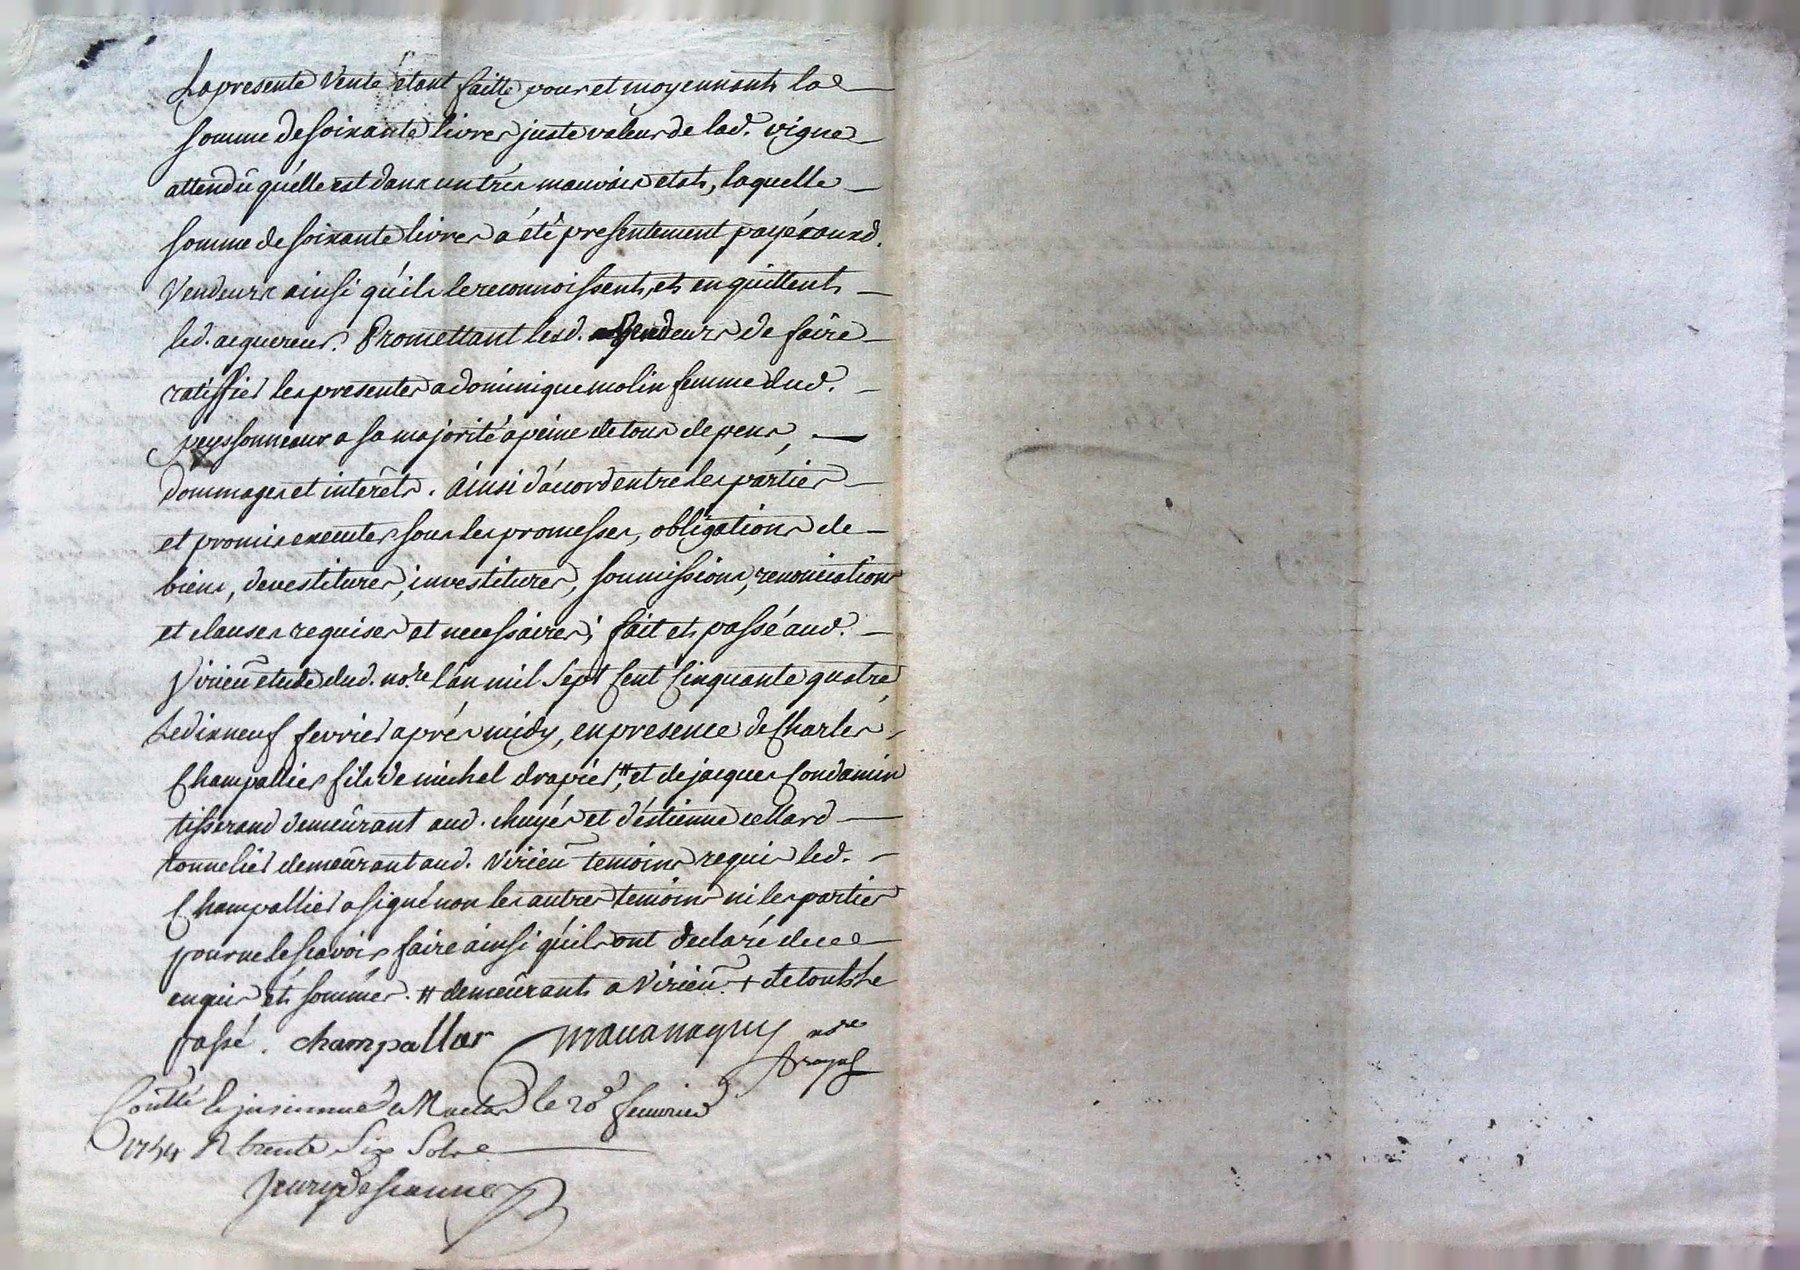 La presente vente étant faitte pour et moyennant la
somme de soixante livres juste valeur de lad. vigne
attendû qu'elle est dans un trés mauvais etat, laquelle
somme de soixante livres a été presentement payée auxd.
Vendeurs ainsi qu'ils le reconnoissent, et en quittent
led. acquereur. Promettant lesd. Vendeurs de faire
ratiffier les presentes a dominique molin femme dud.
peyssonneaux a sa majorité a peine de tous depens,
dommages et interêts. ainsi d'accord entre les parties
et promis executer sous les promesses, obligations de
biens, devestitures, investitures, soumissions, renonciations
et clauses requises et necessaires; fait et passé aud.
Virieû etude dud. no.re l'an mil sept cent cinquante quatre
Le dixneuf fevrier aprés midy, en presence de Charles
Champallier fils de michel drapier, # et de jacques Condamin
tisserand demeûrant aud. chuyés et d'éstienne cellard
tonnelier demeûrant aud. Virieû temoins requis led.
Champallier a signé non les autres temoins ni les parties
pour ne le sçavoir faire ainsi qu'ils ont declaré de ce
enquis et sommés. # demeûrant a Virieû + de tout
passé. champallier nre
Contlé &amp; insinué a le 20 fevrier
1754 R trente six sols